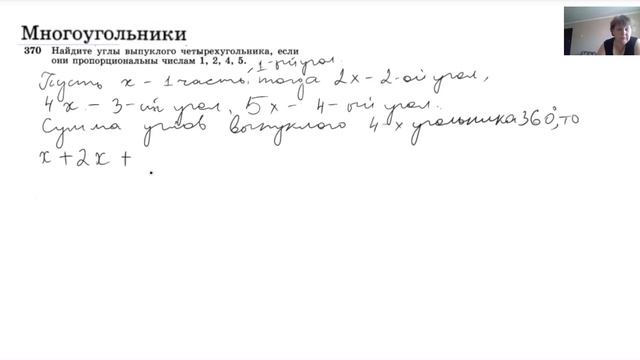 Многоугольники
370 Найдите углы выпуклого четырехугольника, если
они пропорциональны числам 1, 2, 4, 5.
1-ый угол.
Пусть x - 1 часть, тогда 2x - 2-ой угол,
4x - 3-ий угол, 5x - 4-ый угол.
Сумма углов выпуклого 4-х угольника 360°, то
x + 2x +